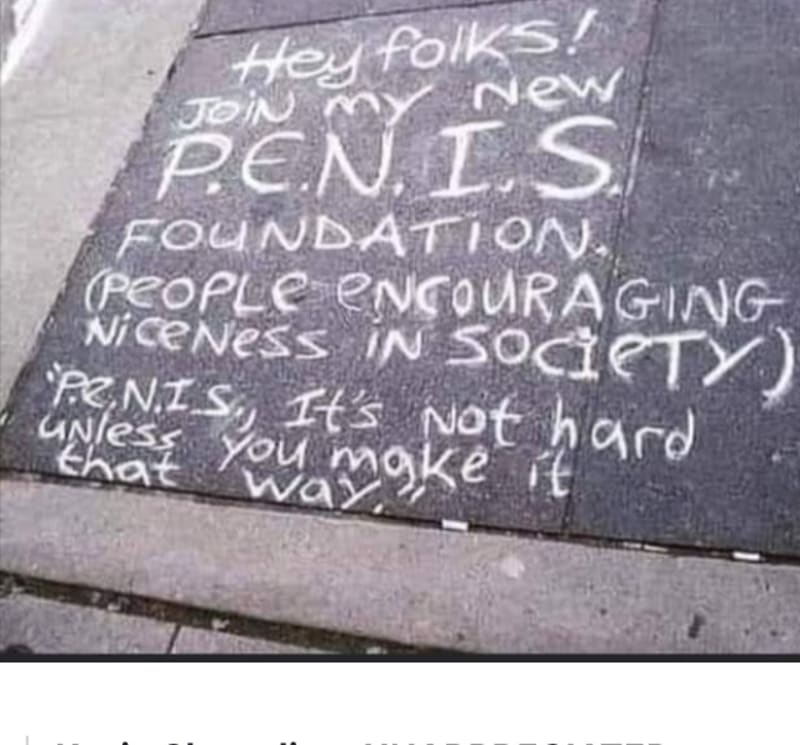 Hey folks!
JOIN MY New
P.E.N.I.S.
FOUNDATION.
(PEOPLE ENCOURAGING
NiCeNess iN SOCiETY)
"P.E.N.I.S., It's Not hard
unless you make it
that way."